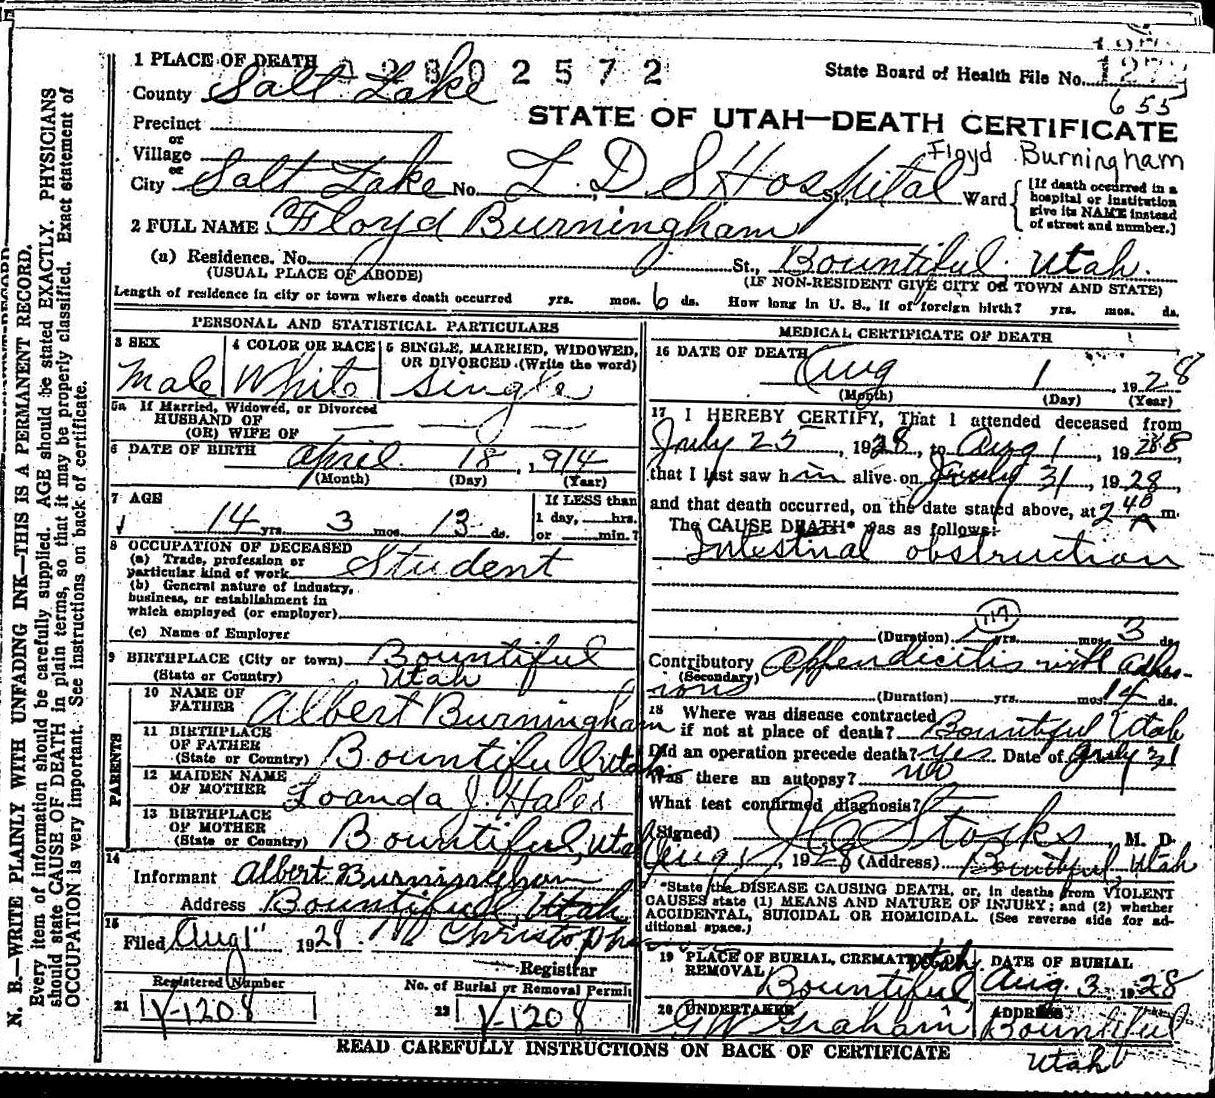 1 PLACE OF DEATH 3 2 8 0 2 5 7 2
State Board of Health File No.
County Salt Lake
655
STATE OF UTAH—DEATH CERTIFICATE
Precinct
or
Village
Floyd Burningham
or
City Salt Lake No. L. D. S Hospital St., Ward
[If death occurred in a hospital or institution give its NAME instead of street and number.]
2 FULL NAME Floyd Burningham
(a) Residence. No. St., Bountiful, Utah.
(USUAL PLACE OF ABODE) (IF NON-RESIDENT GIVE CITY OR TOWN AND STATE)
Length of residence in city or town where death occurred yrs. mos. 6 ds. How long in U. S., if of foreign birth? yrs. mos. ds.
PERSONAL AND STATISTICAL PARTICULARS
3 SEX 4 COLOR OR RACE 5 SINGLE, MARRIED, WIDOWED,
OR DIVORCED (Write the word)
Male White Single
5a If Married, Widowed, or Divorced
HUSBAND OF
(OR) WIFE OF
6 DATE OF BIRTH April 18, 1914
(Month) (Day) (Year)
7 AGE If LESS than
14 yrs. 3 mos. 13 ds. 1 day, hrs.
or min.?
8 OCCUPATION OF DECEASED
(a) Trade, profession or
particular kind of work Student
(b) General nature of industry,
business, or establishment in
which employed (or employer)
(c) Name of Employer
9 BIRTHPLACE (City or town) Bountiful
(State or Country) Utah
PARENTS
10 NAME OF
FATHER Albert Burningham
11 BIRTHPLACE
OF FATHER
(State or Country) Bountiful Utah
12 MAIDEN NAME
OF MOTHER Loanda J. Hales
13 BIRTHPLACE
OF MOTHER
(State or Country) Bountiful, Utah
14
Informant Albert Burningham
Address Bountiful, Utah
15
Filed Aug 1" 1928
Registrar
Registered Number No. of Burial or Removal Permit
21 V-1208 22 V-1208
MEDICAL CERTIFICATE OF DEATH
16 DATE OF DEATH
Aug 1, 1928
(Month) (Day) (Year)
17 I HEREBY CERTIFY, That I attended deceased from
July 25, 1928, to Aug 1, 1928
that I last saw him alive on July 31, 1928,
and that death occurred, on the date stated above, at 2 40 A m.
The CAUSE DEATH* was as follows:
Intestinal obstruction
117
(Duration) yrs. mos. 3 ds.
Contributory Appendicitis with adhes-
(Secondary)
ions (Duration) yrs. mos. 14 ds.
18 Where was disease contracted
if not at place of death? Bountiful Utah
Did an operation precede death? yes Date of July 31
Was there an autopsy? no
What test confirmed diagnosis?
(Signed) Stocks M. D.
Aug 1, 1928 (Address) Bountiful, Utah
*State the DISEASE CAUSING DEATH, or, in deaths from VIOLENT
CAUSES state (1) MEANS AND NATURE OF INJURY; and (2) whether
ACCIDENTAL, SUICIDAL OR HOMICIDAL. (See reverse side for ad-
ditional space.)
19 PLACE OF BURIAL, CREMATION OR
REMOVAL
Bountiful, Utah
DATE OF BURIAL
Aug. 3, 1928
20 UNDERTAKER
G W Graham
ADDRESS
Bountiful
Utah
READ CAREFULLY INSTRUCTIONS ON BACK OF CERTIFICATE
N. B.—WRITE PLAINLY WITH UNFADING INK—THIS IS A PERMANENT RECORD.
Every item of information should be carefully supplied. AGE should be stated EXACTLY. PHYSICIANS
should state CAUSE OF DEATH in plain terms, so that it may be properly classified. Exact statement of
OCCUPATION is very important. See instructions on back of certificate.